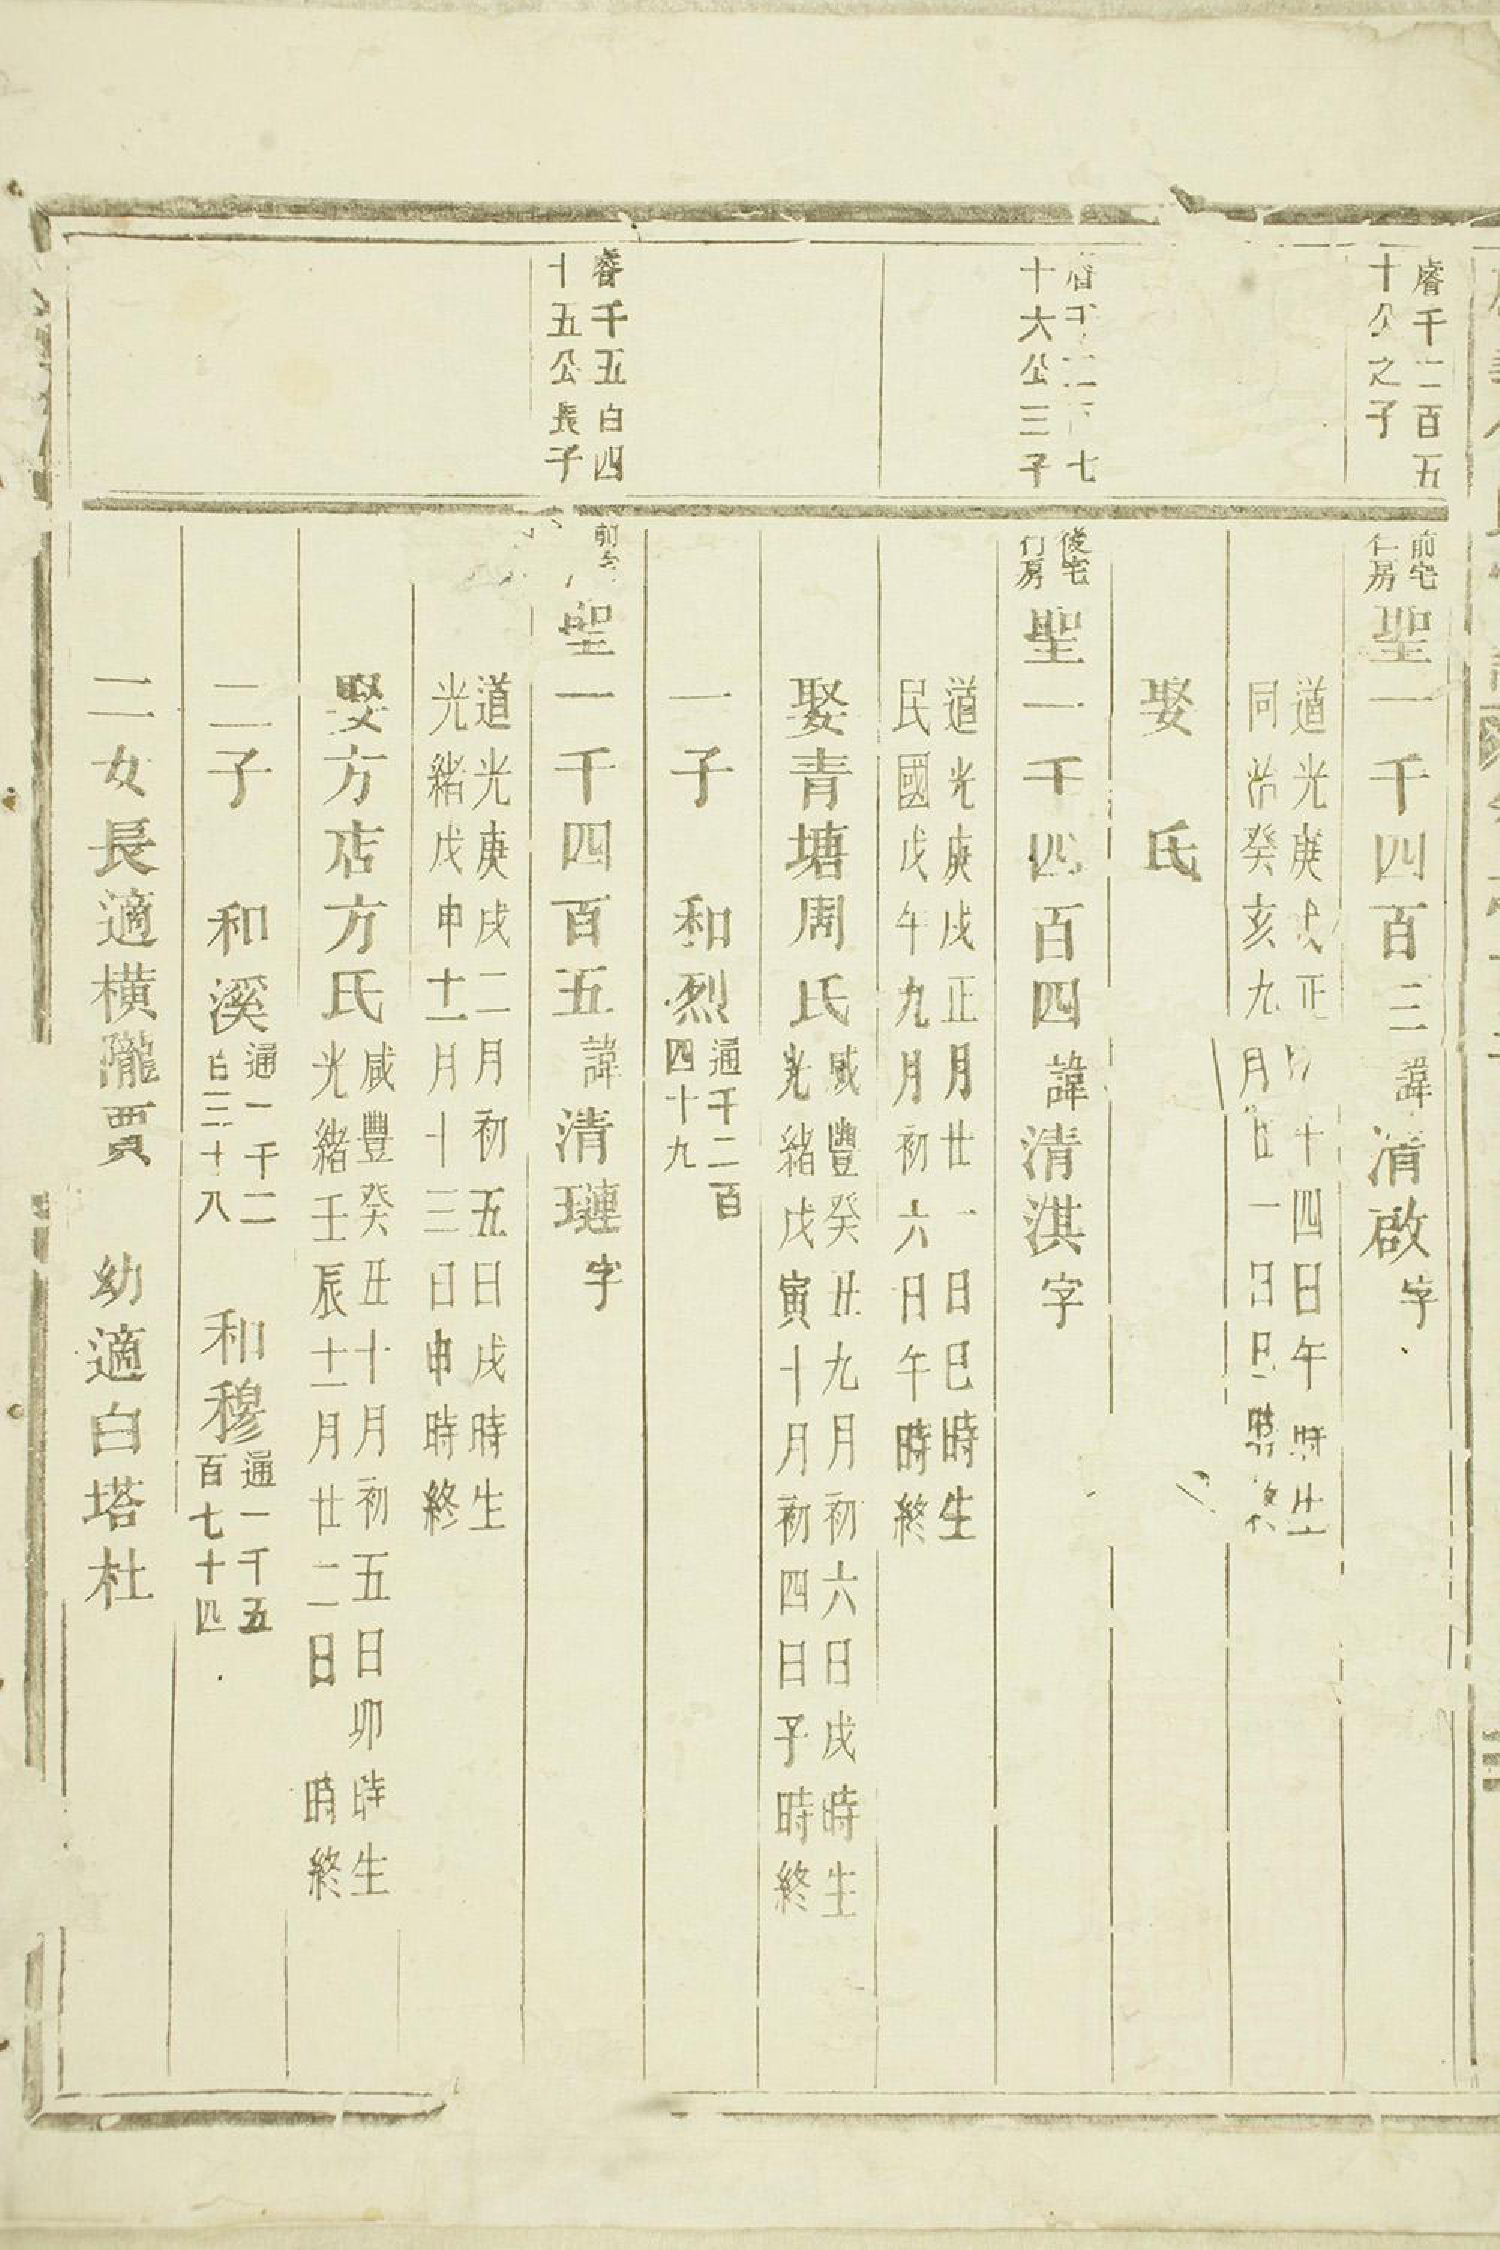 睿千二百五
十公之子
前宅
仁房
聖一千四百三諱清啟字
道光庚戌正月十四日午時生
同治癸亥九月廿一日巳時終
娶　氏
睿千二百七
十六公三子
後宅
行房
聖一千四百四諱清淇字
道光庚戌正月廿一日巳時生
民國戊午九月初六日午時終
娶青塘周氏
咸豐癸丑九月初六日戌時生
光緒戊寅十月初四日子時終
一子　和烈
通千二百
四十九
睿千五百四
十五公長子
前
聖一千四百五諱清璉字
道光庚戌二月初五日戌時生
光緒戊申十一月十三日申時終
娶方店方氏
咸豐癸丑十月初五日卯時生
光緒壬辰十一月廿二日　時終
二子　和溪
通一千二
百三十八
和穆
通一千五
百七十四
二女長適橫隴賈　幼適白塔杜